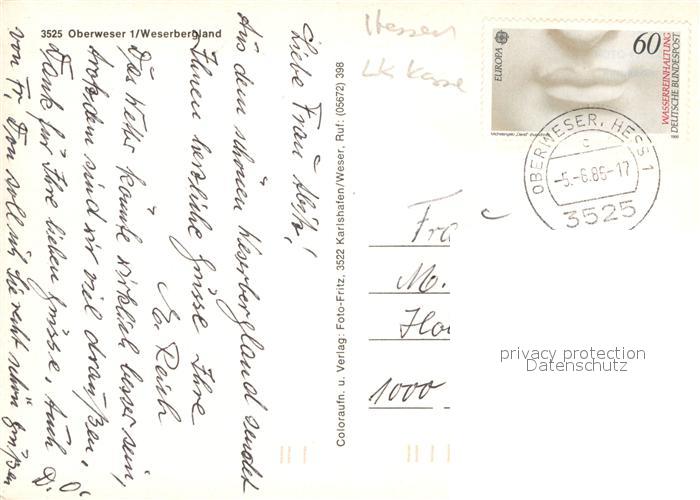 3525 Oberweser 1/Weserbergland
Liebe Frau
Aus dem schönen Weserbergland sendet
Ihnen herzliche Grüsse Ihre
M. Reich
Das Wetter könnte wirklich besser sein,
trotzdem sind wir viel draußen.
Dank für Ihre lieben Grüsse. Auch
von Fr. soll ich Sie recht schön grüßen
D. O.
Coloraufn. u. Verlag: Foto-Fritz, 3522 Karlshafen/Weser, Ruf: (05672) 398
Hessen
LK Kassel
EUROPA
60
WASSERREINHALTUNG
DEUTSCHE BUNDESPOST
OBERWESER, HESS 1
c
-5.-6.86-17
3525
Fra
M.
1000
privacy protection
Datenschutz